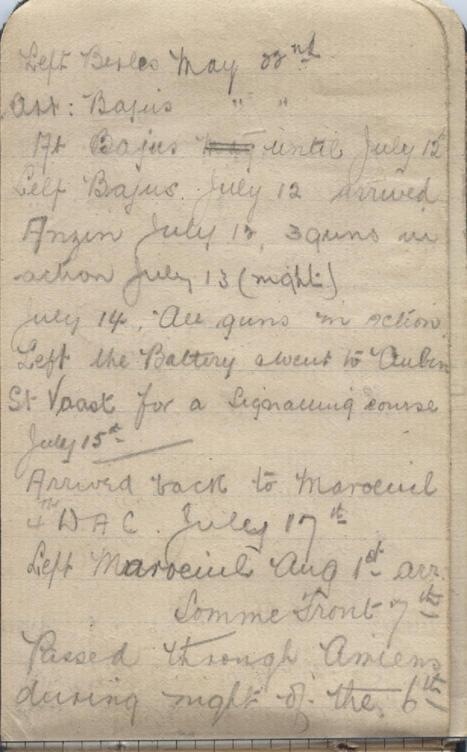 Left Berles May 22nd
Arr: Bajus " "
At Bajus until July 12
Left Bajus. July 12 arrived
Anzin July 13, 3 guns in
action July 13 (night)
July 14, All guns in action
Left the Battery & went to Aubin
St Vaast for a Signalling course
July 15th
Arrived back to Maroeuil
4TH D A C. July 17th
Left Maroeuil Aug 1st arr.
Somme Front 7th
Passed through Amiens
during night of the 6th